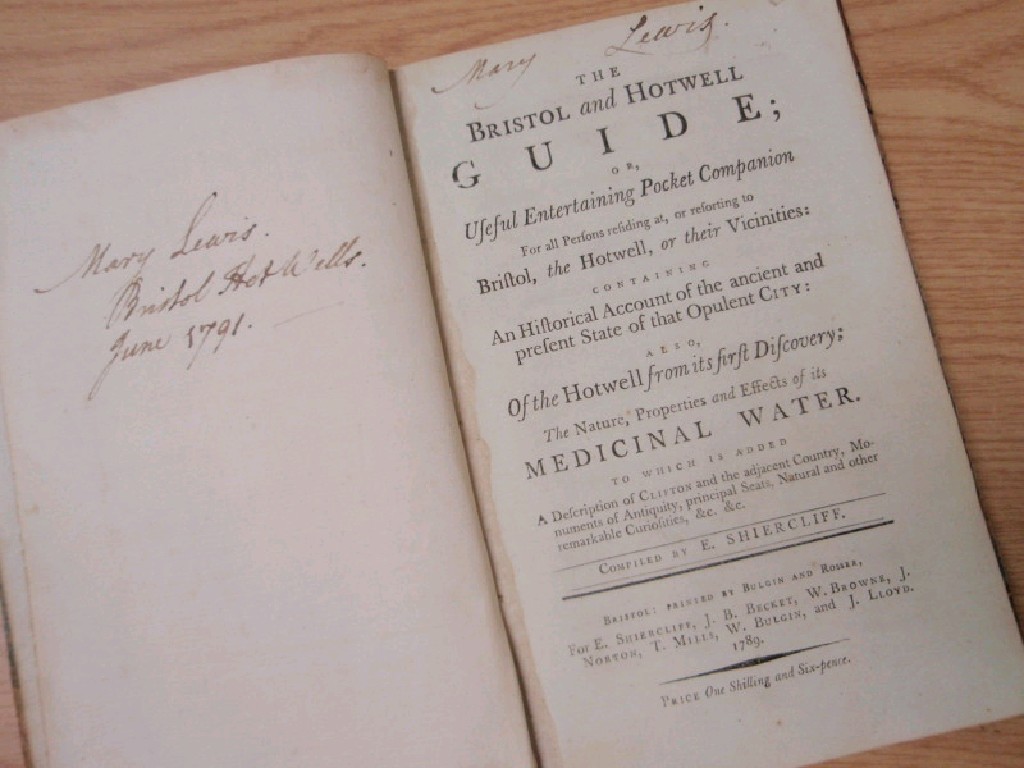 Mary Lewis.
Bristol Hot Wells.
June 1791.
Mary Lewis.
THE
BRISTOL and HOTWELL
GUIDE;
OR,
Uſeful Entertaining Pocket Companion
For all Perſons reſiding at, or reſorting to
Briſtol, the Hotwell, or their Vicinities:
CONTAINING
An Hiſtorical Account of the ancient and
preſent State of that Opulent CITY:
ALSO,
Of the Hotwell from its firſt Diſcovery;
The Nature, Properties and Effects of its
MEDICINAL WATER.
TO WHICH IS ADDED
A Deſcription of CLIFTON and the adjacent Country, Mo-
numents of Antiquity, principal Seats, Natural and other
remarkable Curioſities, &c. &c.
COMPILED BY E. SHIERCLIFF.
BRISTOL: PRINTED BY BULGIN AND ROSSER,
For E. SHIERCLIFF, J. B. BECKET, W. BROWNE, J.
NORTON, T. MILLS, W. BULGIN, and J. LLOYD.
1789.
PRICE One Shilling and Six-pence.